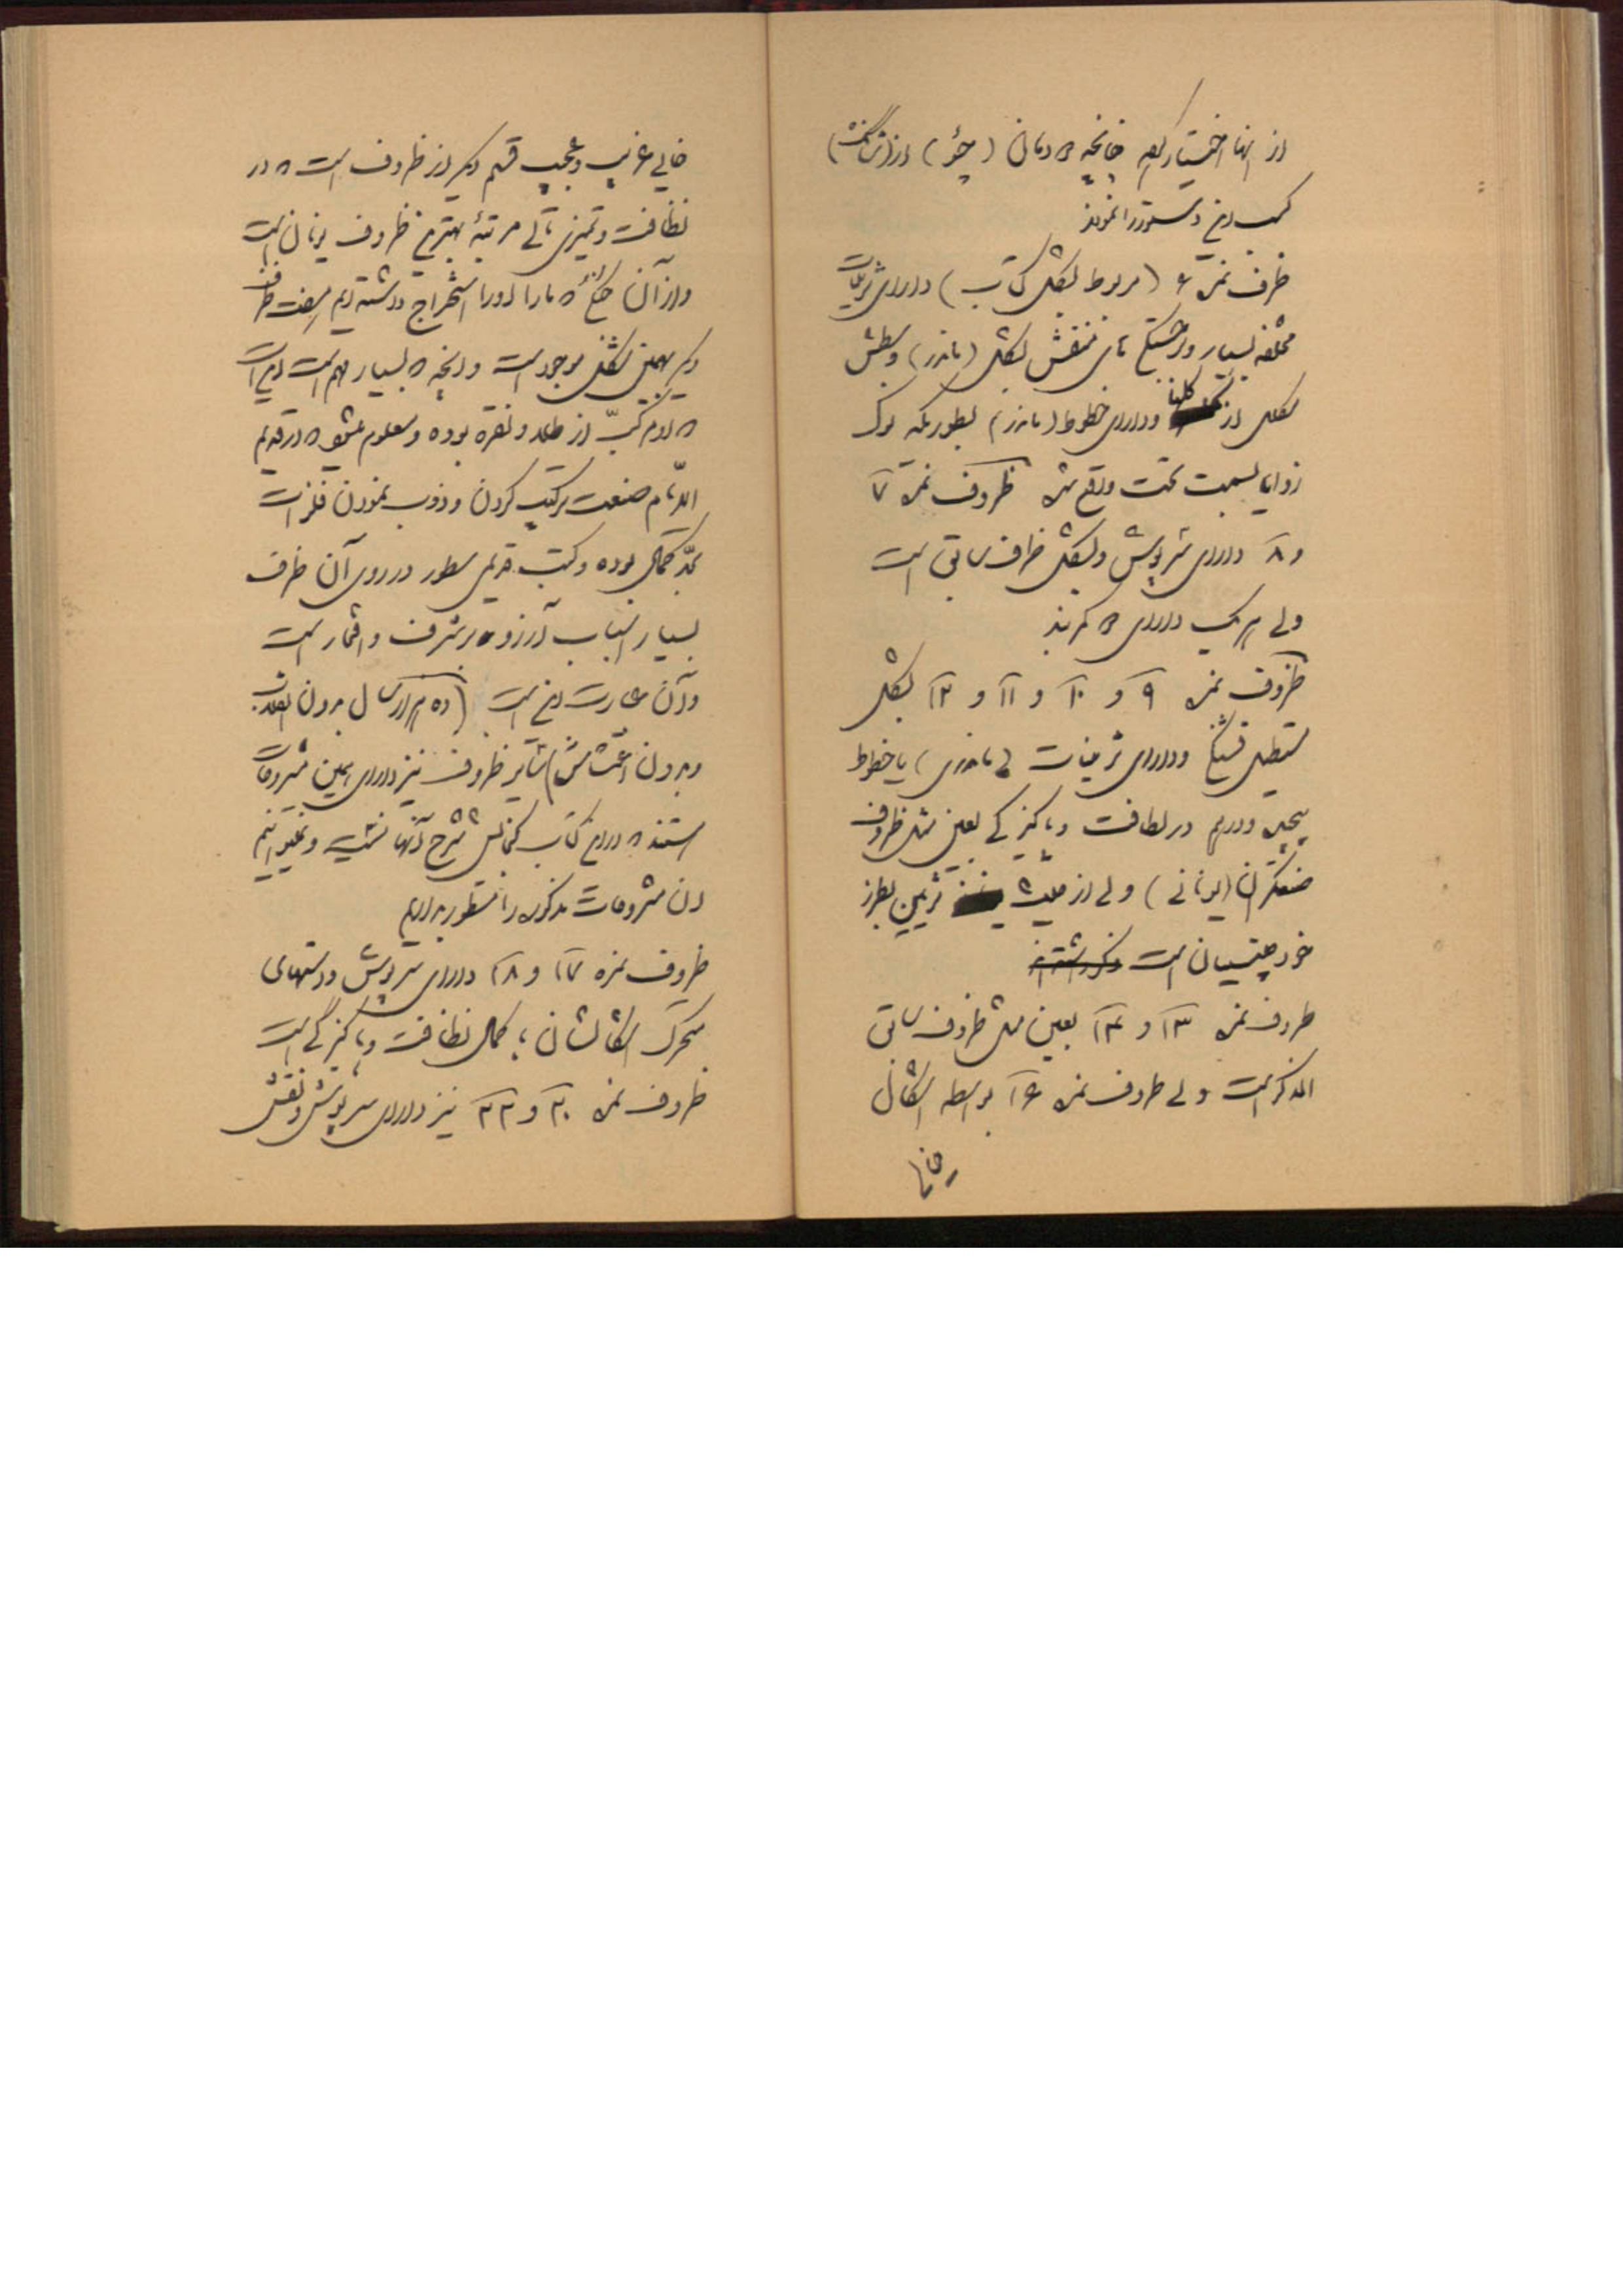 از آنها اختیار کرده چنانچه در زمان (چئو)
کسب این دستور را نمودند
ظرف نمره ۶ (مربوط بشکل کتاب) دارای تزیینات
مختلفه بسیار و برجستگی های منقش بشکل (ماندر) و سطش
بشکل از گلها و دارای خطوط (ماندر) بطوریکه نوک
زوایا بسمت تحت واقع شده ظروف نمره ۷
و ۸ دارای سرپوش و بشکل ظرف سابق است
ولی هر یک دارای کمربند
ظروف نمره ۹ و ۱۰ و ۱۱ و ۱۲ بشکل
مستطیل قشنگ و دارای تزیینات (ماندری) یا خطوط
پیچیده و درهم در لطافت و پاکیزگی بعین مثل ظروف
صنعتگران (یونانی) ولی از حیث تزیین بطرز
خود چینیان است
ظروف نمره ۱۳ و ۱۴ بعین مثل ظروف سابق
الذکر است ولی ظروف نمره ۱۶ بواسطه اشکال
خیلی غریب و عجیب قسم دیگر از ظروف است که در
نظافت و تمیزی تالی مرتبه بهترین ظروف یونان است
و از آن که ما را او را استخراج داشته ایم هفت ظرف
دیگر بهمین شکل موجود است و آنچه که بسیار مهم است این است
که مرکب از طلا و نقره بوده و معلوم میشود که در قدیم
الایام صنعت ترکیب کردن و ذوب نمودن فلزات
بحد کمال بوده و کتیبه قدیمی مسطور در روی آن ظرف
بسیار اسباب آرزو و شرف و افتخار است
و آن عبارت این است (ده هزار سال بدون انقلاب
و بدون اغتشاش) سایر ظروف نیز دارای همین مشروحات
هستند که در این کتاب گنجایش شرح آنها نیست و نمیتوانیم
آن مشروحات مذکوره را منظور بداریم
ظروف نمره ۱۷ و ۱۸ دارای سرپوش و دستهای
متحرک اشکالشان با کمال نظافت و پاکیزگی است
ظروف نمره ۲۰ و ۲۲ نیز دارای سرپوش و نقش